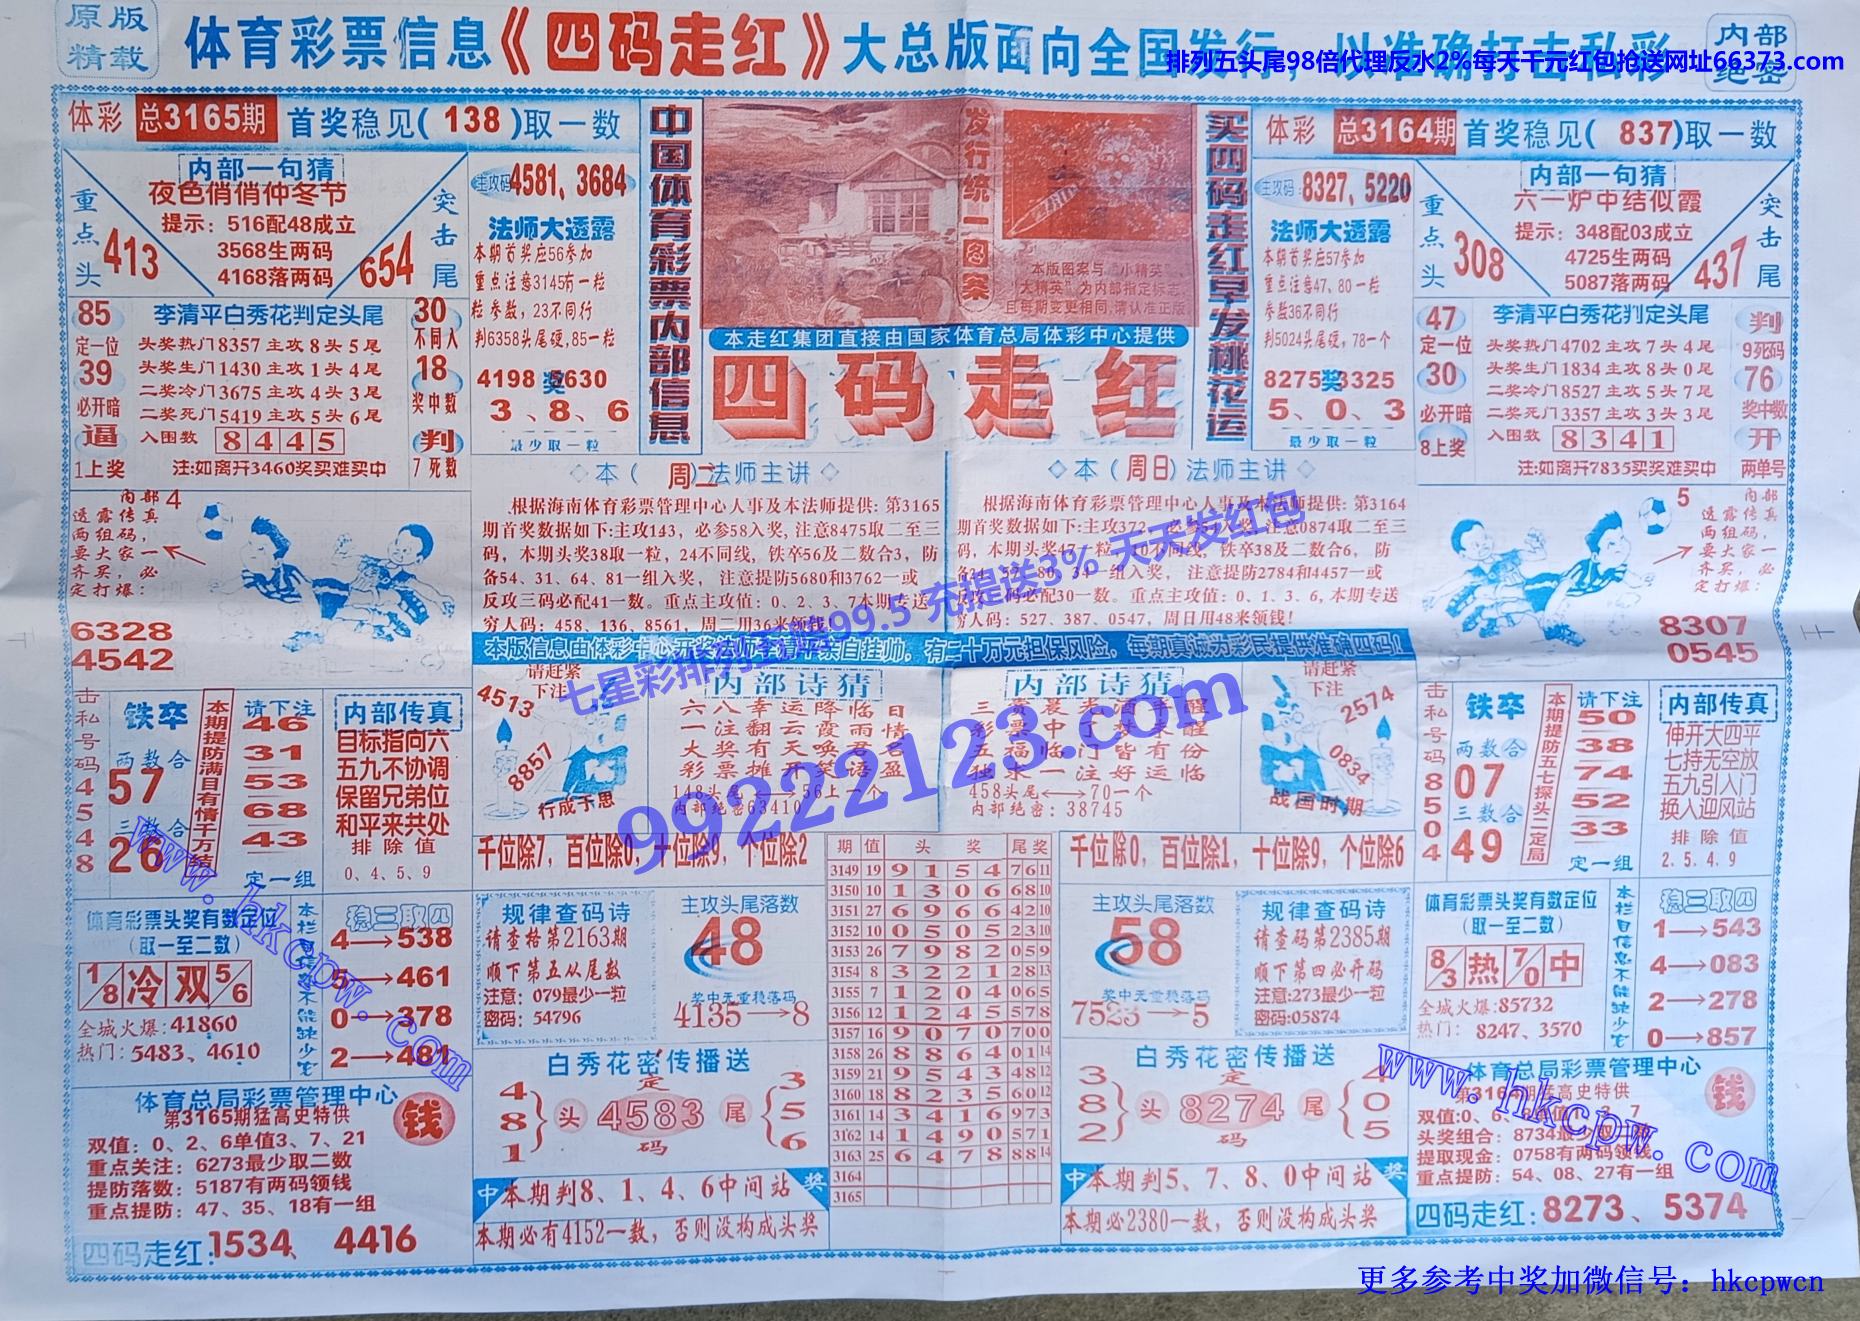 原版
精载
体育彩票信息《四码走红》大总版面向全国发行，以准确打击私彩
内部
绝密
排列五头尾98倍代理反水2%每天千元红包抢送网址66373.com
体彩 总3165期 首奖稳见(138)取一数
内部一句猜
夜色俏俏仲冬节
提示：516配48成立
3568生两码
4168落两码
重点头
413
突击尾
654
主攻码 4581, 3684
法师大透露
本期首奖应56参加
重点注意3145有一粒
粒参数，23不同行
判6358头尾硬,85一粒
4198奖5630
3、8、6
最少取一粒
85
定一位
39
必开暗
逼
1上奖
李清平白秀花判定头尾
头奖热门8357主攻8头5尾
头奖生门1430主攻1头4尾
二奖冷门3675主攻4头3尾
二奖死门5419主攻5头6尾
入围数 8 4 4 5
注:如离开3460奖买难买中
30
不同人
18
奖中数
判
7死数
中国体育彩票内部信息
发行统一图案
本版图案与“小精英”
“大精英”为内部指定标志
且每期变更相同,请认准正版
本走红集团直接由国家体育总局体彩中心提供
四码走红
买四码走红早发桃花运
体彩 总3164期 首奖稳见(837)取一数
主攻码:8327, 5220
法师大透露
本期首奖应57参加
重点注意47、80一粒
参数36不同行
判5024头尾硬，78一个
8275奖3325
5、0、3
最少取一粒
内部一句猜
六一炉中结似霞
提示：348配03成立
4725生两码
5087落两码
重点头
308
突击尾
437
47
定一位
30
必开暗
8上奖
李清平白秀花判定头尾
头奖热门4702主攻7头4尾
头奖生门1834主攻8头0尾
二奖冷门8527主攻7头5尾
二奖死门3357主攻3头3尾
入围数 8 3 4 1
注:如离开7835买奖难买中
判
9死码
76
奖中数
开
两单号
内部 4
透露传真
两组码，
要大家一
齐买，必
定打爆：
6328
4542
◇本（周二）法师主讲◇
根据海南体育彩票管理中心人事及本法师提供: 第3165
期首奖数据如下:主攻143，必参58入奖，注意8475取二至三
码，本期头奖38取一粒，24不同线，铁卒56及二数合3，防
备54、31、64、81一组入奖， 注意提防5680和3762一或
反攻三码必配41一数。重点主攻值：0、2、3、7本期专送
穷人码：458、136、8561，周二用36来领钱！
◇本（周日）法师主讲◇
根据海南体育彩票管理中心人事及本法师提供: 第3164
期首奖数据如下:主攻372，必参54入奖,注意0874取二至三
码，本期头奖47一粒，10不同线，铁卒38及二数合6，防
备34、57、80、34一组入奖， 注意提防2784和4457一或
反攻三码必配30一数。重点主攻值：0、1、3、6, 本期专送
穷人码：527、387、0547，周日用48来领钱！
5 内部
透露传真
两组码，
要大家一
齐买，必
定打爆：
8307
0545
本版信息由体彩中心开奖法师李清平亲自挂帅，有二十万元担保风险，每期真诚为彩民提供准确四码!
击私号码45548
铁卒
两数合
57
三数合
26
本期提防满目有情千万结
请下注
46
31
53
68
43
定一组
内部传真
目标指向六
五九不协调
保留兄弟位
和平来共处
排除值
0、4、5、9
4513
8857
请赶紧
下注
行成于思
内部诗猜
六八幸运降临日
一注翻云霞雨情
大奖有天唤君名
彩票摊开笑语盈
148头尾⟷56上一个
内部绝密63410
内部诗猜
458头尾⟷70一个
内部绝密：38745
请赶紧
下注
2574
0834
战国时期
击私号码88504
铁卒
两数合
07
三数合
49
本期提防五七探头二定局
请下注
50
38
74
52
33
定一组
内部传真
伸开大四平
七持无空放
五九引入门
换入迎风站
排除值
2. 5. 4. 9
七星彩排列五赔99.5 充提送3% 天天发红包
99222123.com
千位除7，百位除0，十位除9，个位除2
千位除0，百位除1，十位除9，个位除6
期 值 头奖 尾奖
3149 19 9 1 5 4 7 6 11
3150 10 1 3 0 6 6 8 10
3151 27 6 9 6 6 4 2 10
3152 10 0 5 0 5 2 3 10
3153 26 7 9 8 2 0 5 9
3154 8 3 2 2 1 2 8 13
3155 7 1 2 0 4 0 6 5
3156 12 1 2 4 5 5 7 8
3157 16 9 0 7 0 7 0 0
3158 26 8 8 6 4 0 1 14
3159 21 9 5 4 3 4 8 12
3160 18 8 2 3 5 6 0 12
3161 14 3 4 1 6 9 7 3
3162 14 1 4 9 0 5 7 1
3163 25 6 4 7 8 8 8 14
3164
3165
体育彩票头奖有数定位
(取一至二数)
1/8 冷 双 5/6
全城火爆:41860
热门：5483、4610
本栏目信息不能缺少它
稳三取四
4→538
5→461
0→378
2→481
规律查码诗
请查格第2163期
顺下第五从尾数
注意：079最少一粒
密码：54796
主攻头尾落数
48
奖中无重稳落码
4135→8
主攻头尾落数
58
奖中无重稳落码
7523→5
规律查码诗
请查码第2385期
顺下第四必开码
注意:273最少一粒
密码:05874
体育彩票头奖有数定位
(取一至二数)
8/3 热 7/0 中
全城火爆:85732
热门： 8247、3570
本栏目信息不能缺少它
稳三取四
1→543
4→083
2→278
0→857
体育总局彩票管理中心
第3165期猛高史特供
钱
双值：0、2、6单值3、7、21
重点关注：6273最少取二数
提防落数：5187有两码领钱
重点提防：47、35、18有一组
四码走红:1534、4416
白秀花密传播送
4
8
1
头 定 4583 码 尾
3
5
6
中 本期判8、1、4、6中间站 奖
本期必有4152一数，否则没构成头奖
白秀花密传播送
3
8
2
头 定 8274 码 尾
4
0
5
中 本期判5、7、8、0中间站 奖
本期必2380一数，否则没构成头奖
体育总局彩票管理中心
第3164期猛高史特供
钱
头奖组合：8734最少取二数
提取现金：0758有两码领钱
重点提防：54、08、27有一组
四码走红：8273、5374
www.hkcpw.com
www.hkcpw.com
更多参考中奖加微信号：hkcpwcn